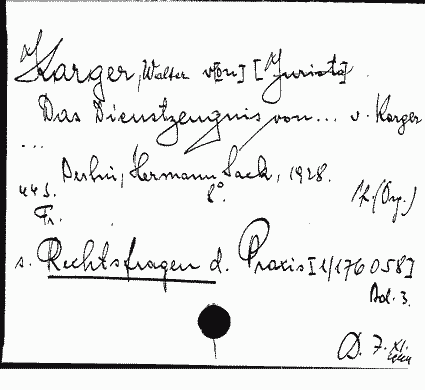 Karger, Walter v[on] [Jurista]
Das Dienstzeugnis von... v. Karger
...
Berlin, Hermann Sack, 1928.
44 S. 8°.
Fr.
s. Rechtsfragen d. Praxis [1/176058]
Bd. 3.
D. 7. XI.